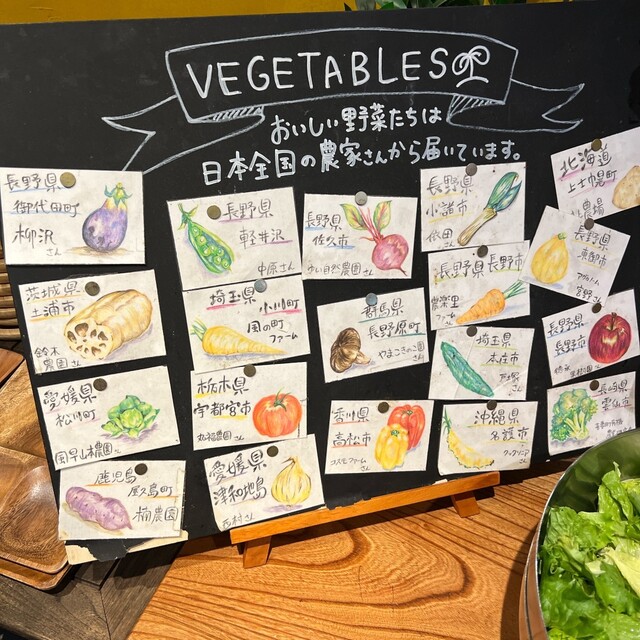 VEGETABLES
おいしい野菜たちは
日本全国の農家さんから届いています。
長野県
御代田町
柳沢
さん
長野県
軽井沢
中原さん
長野県
佐久市
自然農園さん
長野県
小諸市
依田
さん
北海道
上士幌町
農場
茨城県
土浦市
鈴木
農園さん
埼玉県
小川町
風の町
ファーム
群馬県
長野原町
やまこきのこ園
さん
長野県長野市
ファーム
長野県
東御市
宮野さん
愛媛県
松川町
風早山本農園さん
栃木県
宇都宮市
丸福農園さん
埼玉県
本庄市
さん
長野県
長野市
さん
鹿児島
屋久島町
楠農園
愛媛県
津和地島
西村さん
香川県
高松市
ファーム
さん
沖縄県
名護市
さん
長崎県
雲仙市